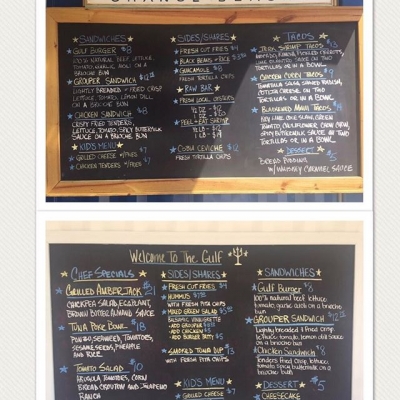 SANDWICHES
GULF BURGER $8
100% NATURAL BEEF, LETTUCE
TOMATO, GARLIC AIOLI ON A
BRIOCHE BUN
GROUPER SANDWICH $12
LIGHTLY BREADED + FRIED CRISP
LETTUCE, TOMATO, LEMON DILL
ON A BRIOCHE BUN
CHICKEN SANDWICH $8
CRISPY FRIED TENDERS,
LETTUCE, TOMATO, SPICY BUTTERMILK
SAUCE ON A BRIOCHE BUN
KID'S MENU
GRILLED CHEESE W/FRIES $7
CHICKEN TENDERS W/FRIES
SIDES/SHARES
FRESH CUT FRIES $4
BLACK BEANS + RICE
GUACAMOLE $8
FRESH TORTILLA CHIPS
RAW BAR
FRESH LOCAL OYSTERS
1/2 DZ
DZ
PEEL + EAT SHRIMP
1/2 LB
1 LB
COBIA CEVICHE $12
FRESH TORTILLA CHIPS
TACOS
JERK SHRIMP TACOS
TORTILLAS OR IN A BOWL
CHICKEN CURRY TACOS $9
COTIJA CHEESE ON TWO
TORTILLAS OR IN A BOWL
BLACKENED MAHI TACOS
KEY LIME COLE SLAW, GREEN
TOMATO, CAULIFLOWER CHOW CHOW,
SPICY BUTTERMILK SAUCE ON TWO
TORTILLAS OR IN A BOWL
DESSERT
BREAD PUDDING $5
W/ WHISKEY CARAMEL SAUCE
Welcome To The Gulf
CHEF SPECIALS
GRILLED AMBERJACK
CHICKPEA SALAD, EGGPLANT,
BROWN BUTTER ALMOND SAUCE
TUNA POKE BOWL $18
PONZU, SEAWEED, TOMATOES,
SESAME SEEDS, PINEAPPLE
AND RICE
TOMATO SALAD $10
ARUGULA, TOMATOES, CORN
BREAD CROUTON AND JALAPENO
RANCH
SIDES/SHARES
FRESH CUT FRIES $4
HUMMUS $8
WITH FRESH PITA CHIPS
MIXED GREEN SALAD
BALSAMIC VINAIGRETTE
- ADD GROUPER $8
- ADD CHICKEN
- ADD BURGER PATTY $5
SMOKED TUNA DIP
WITH FRESH PITA CHIPS
KIDS MENU
GRILLED CHEESE $7
SANDWICHES
Gulf Burger $8
100% natural beef, lettuce
tomato, garlic aioli on a
brioche bun
GROUPER SANDWICH $12
Lightly breaded + fried crisp
lettuce, tomato, lemon dill sauce
on a brioche bun
Chicken Sandwich $8
Tenders fried crisp, lettuce,
tomato, spicy buttermilk on a
brioche bun
DESSERT
CHEESECAKE $5